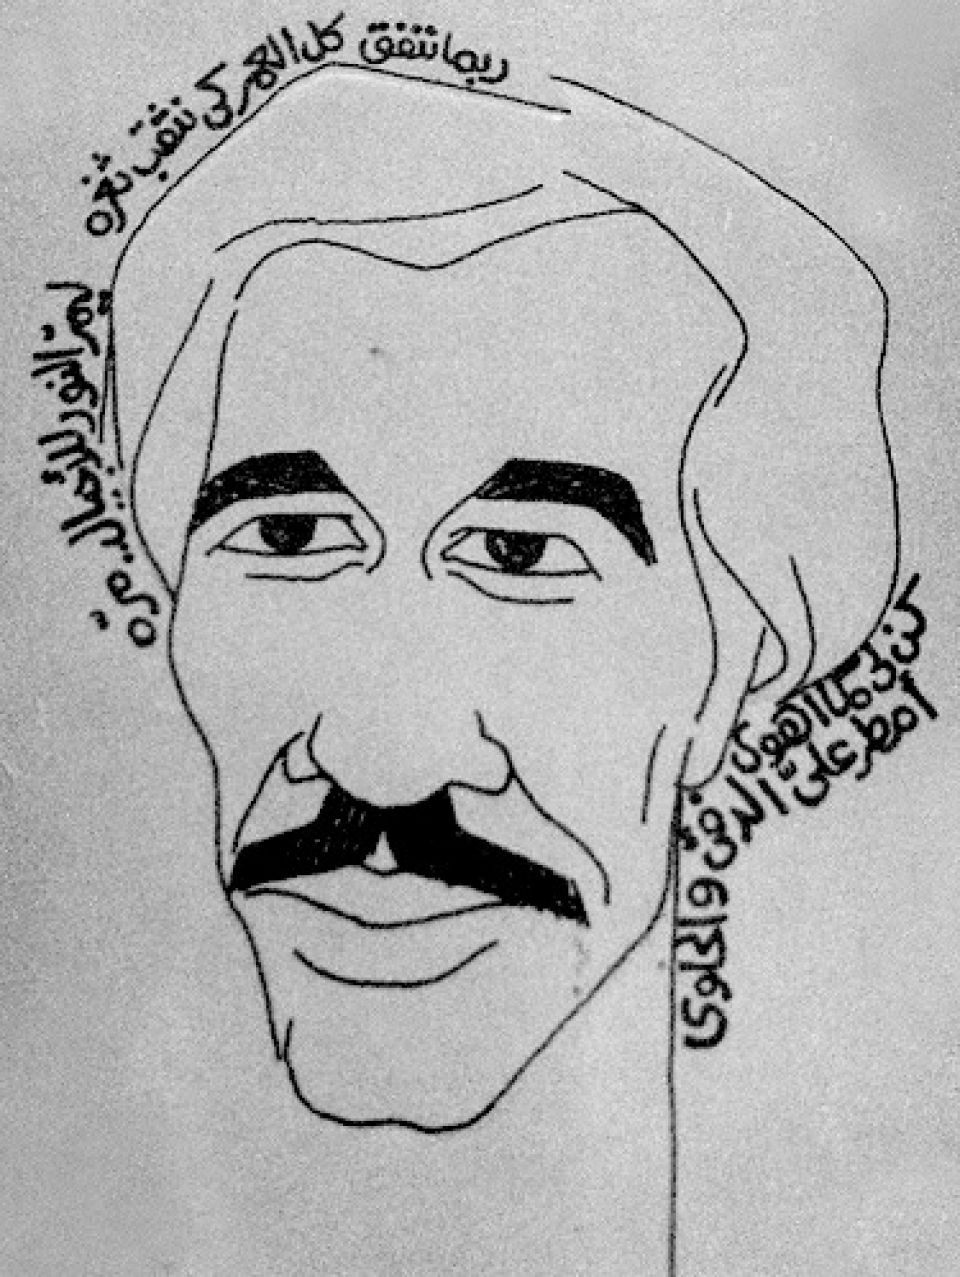 ربما ننفق كل العمر كى نثقب ثغره
ليمرّ النور للأجيال.. مرّه
كن لى كما اهوى
أمطر علىّ الدفئ والحلوى